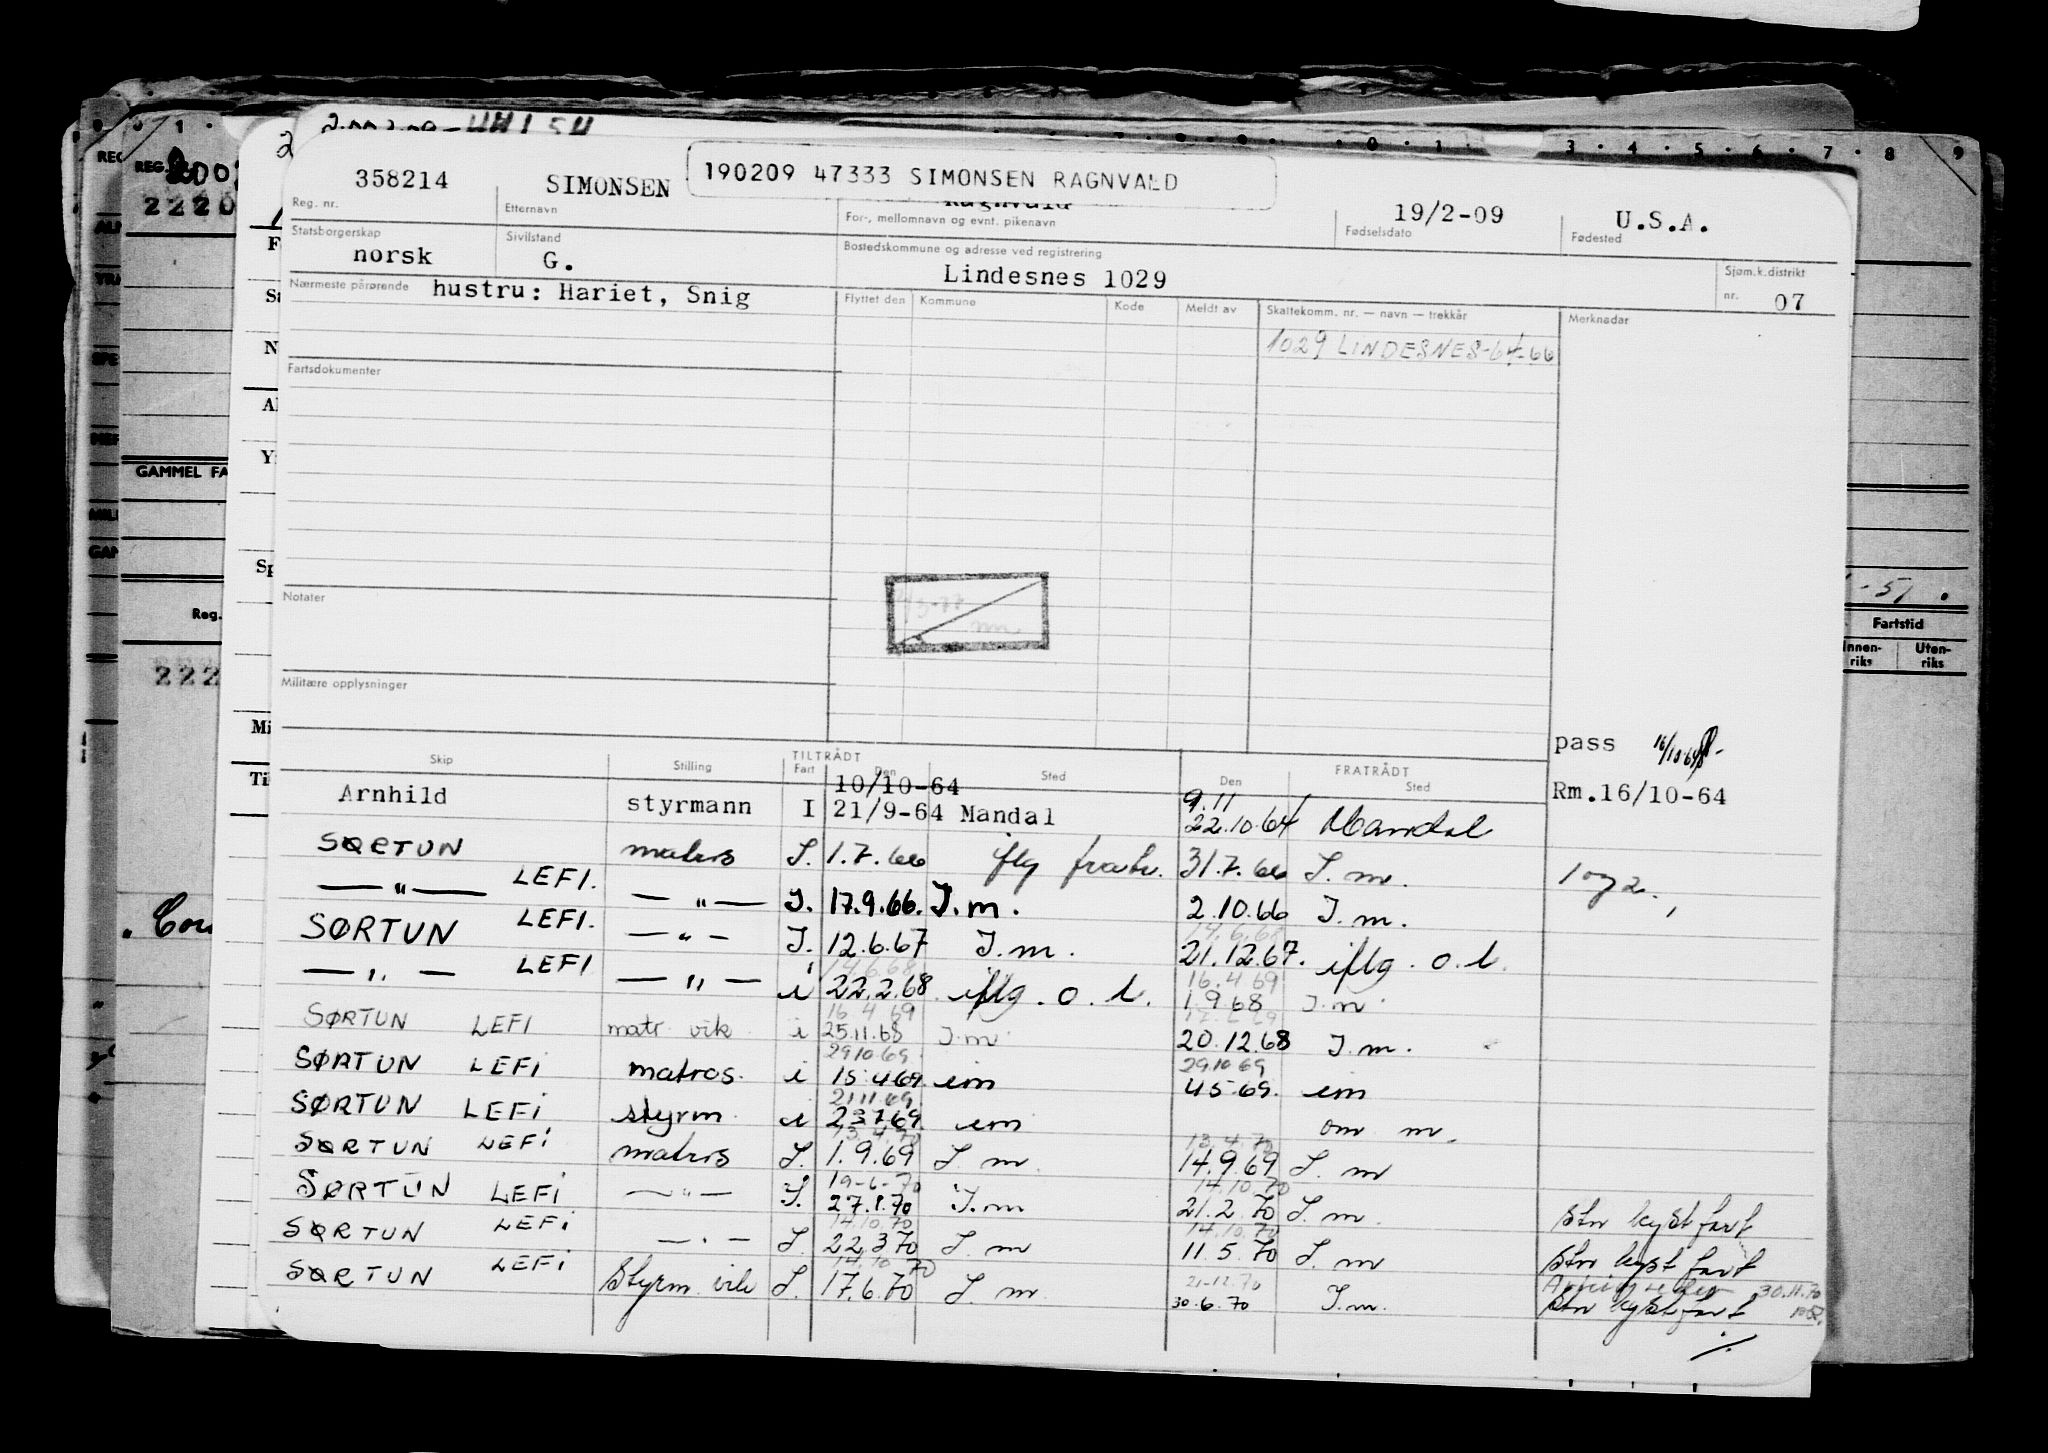 358214 SIMONSEN 190209 47333 SIMONSEN RAGNVALD 19/2-09 U.S.A.
Reg. nr. Etternavn For-, mellomnavn og evnt. pikenavn Fødselsdato Fødested
Statsborgerskap Sivilstand Bostedskommune og adresse ved registrering Sjøm.k.distrikt
norsk G. Lindesnes 1029 nr. 07
Nærmeste pårørende hustru: Hariet, Snig Flyttet den Kommune Kode Meldt av Skattekomm. nr. — navn — trekkår Merknader
1029 LINDESNES-64-66
Fartsdokumenter
GAMMEL FA
Notater
Militære opplysninger
Reg.
Fartstid
Innen-riks Uten-riks
pass 16/10-64
Skip Stilling TILTRÅDT Fart Den Sted FRATRÅDT Den Sted
10/10-64 9.11 Rm.16/10-64
Arnhild styrmann I 21/9-64 Mandal 22.10.64 Mandal
SØRTUN matros I. 1.7.66 iflg fratr. 31.7.66 I.m. 1 og 2.
—"— LEFI. —"— I. 17.9.66. I.m. 2.10.66 I.m.
14.6.68
SØRTUN LEFI. —"— I. 12.6.67 I.m. 21.12.67. iflg. o.l.
14.6.68 16.4.69
—"— LEFI —"— i 22.2.68 iflg. o.l. 1.9.68 I.m
16 4 69
SØRTUN LEFI matr vik i 25.11.68 I.m 20.12.68 I.m.
29.10.69 29.10.69
SØRTUN LEFi matros. i 15.4.69. im 4.5.69. im
21.11.69
SØRTUN LEFi styrm i 23.7.69. im om m.
13.4.70 13.4.70
SØRTUN LEFi matros I. 1.9.69 I.m. 14.9.69 I.m
19-6-70 14.10.70
SØRTUN LEFi —"— I. 27.1.70 I.m 21.2.70 I.m. stn kystfart
14.10.70 14.10.70
SØRTUN LEFi —"— I. 22.3.70 I.m 11.5.70 I.m stn kyst fart
14.10.70 21-12.70 30.11.70
SØRTUN LEFi Styrm vik I. 17.6.70 I.m. 30.6.70 I.m. stn kystfart